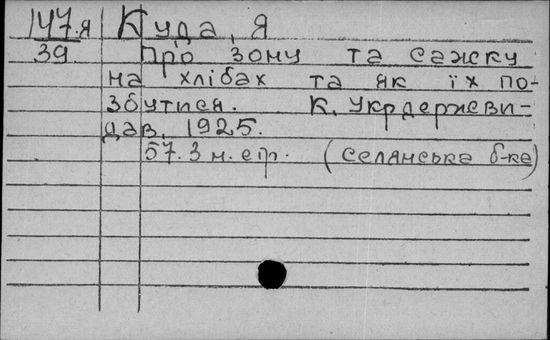 147.я Куда, Я
39 Про зону та сажку
на хлібах та як їх по-
збутися. К. Укрдержеви-
дав, 1925.
57. 3 н. стр. (Селянська б-ка)